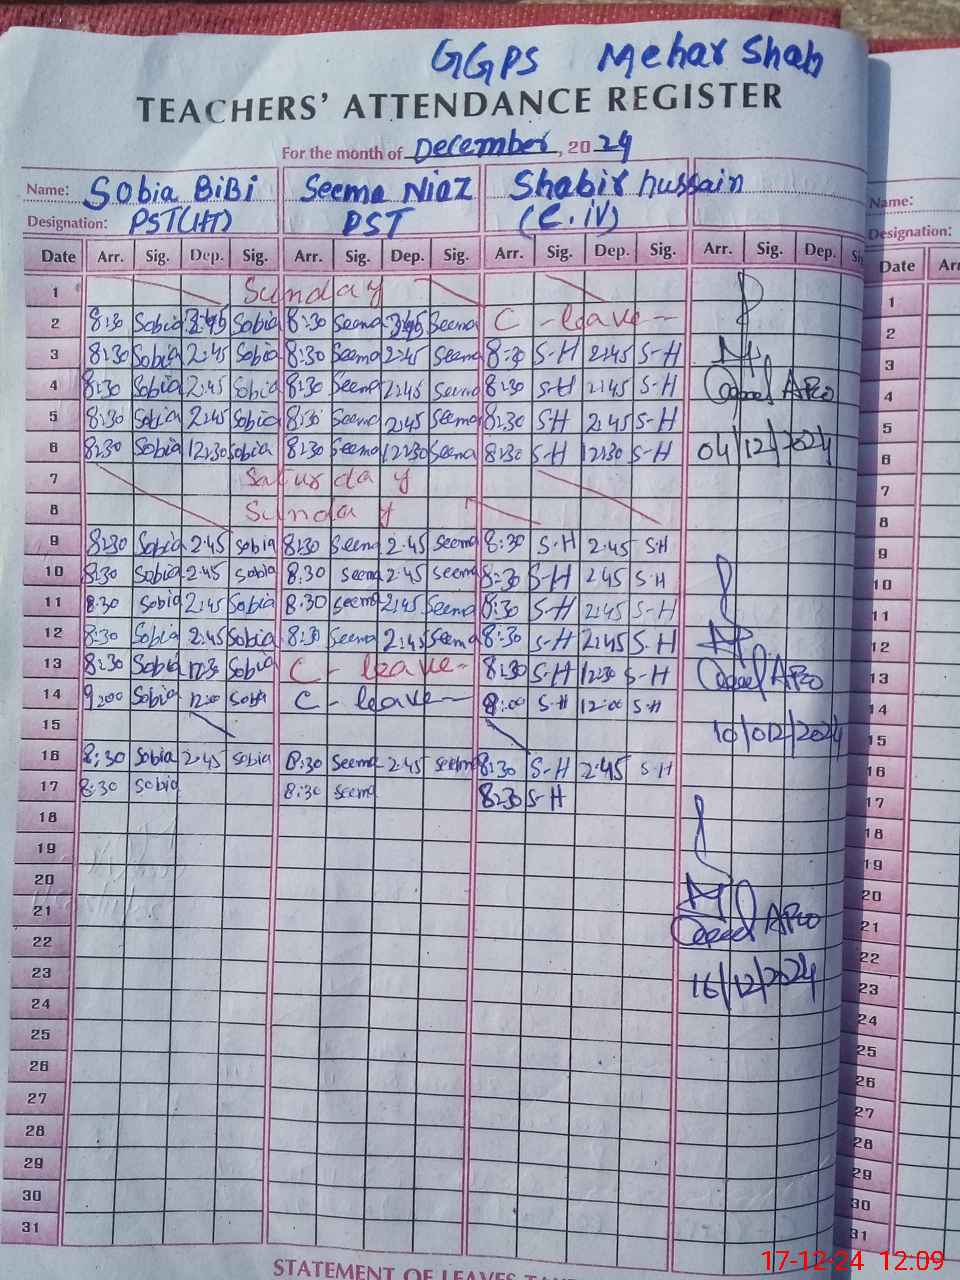 GGPS Mehar Shah
TEACHERS' ATTENDANCE REGISTER
For the month of December, 2024
Name: Sobia BiBi Seema Niaz Shabir hussain
Designation: PST(HT) PST (C.iv)
Date Arr. Sig. Dep. Sig. Arr. Sig. Dep. Sig. Arr. Sig. Dep. Sig. Arr. Sig. Dep.
1 Sunday
2 8:30 Sobia 2:45 Sobia 8:30 Seema 2:45 Seema C - leave -
3 8:30 Sobia 2:45 Sobia 8:30 Seema 2:45 Seema 8:30 S-H 2:45 S-H
4 8:30 Sobia 2:45 Sobia 8:30 Seema 2:45 Seema 8:30 S-H 2:45 S-H
5 8:30 Sobia 2:45 Sobia 8:30 Seema 2:45 Seema 8:30 S-H 2:45 S-H
6 8:30 Sobia 12:30 Sobia 8:30 Seema 12:30 Seema 8:30 S-H 12:30 S-H 04/12/2024
7 Saturday
8 Sunday
9 8:30 Sobia 2:45 Sobia 8:30 Seema 2:45 Seema 8:30 S-H 2:45 S-H
10 8:30 Sobia 2:45 Sobia 8:30 Seema 2:45 Seema 8:30 S-H 2:45 S-H
11 8:30 Sobia 2:45 Sobia 8:30 Seema 2:45 Seema 8:30 S-H 2:45 S-H
12 8:30 Sobia 2:45 Sobia 8:30 Seema 2:45 Seema 8:30 S-H 2:45 S-H
13 8:30 Sobia 12:30 Sobia C - leave - 8:30 S-H 12:30 S-H
14 9:00 Sobia 12:00 Sobia C - leave - 8:00 S-H 12:00 S-H
15 10/012/2024
16 8:30 Sobia 2:45 Sobia 8:30 Seema 2:45 Seema 8:30 S-H 2:45 S-H
17 8:30 Sobia 8:30 Seema 8:30 S-H
18
19
20
21
22
23 16/12/2024
24
25
26
27
28
29
30
31
STATEMENT OF LEAVES
Name:
Designation:
Date
1
2
3
4
5
6
7
8
9
10
11
12
13
14
15
16
17
18
19
20
21
22
23
24
25
26
27
28
29
30
31
17-12-24 12:09